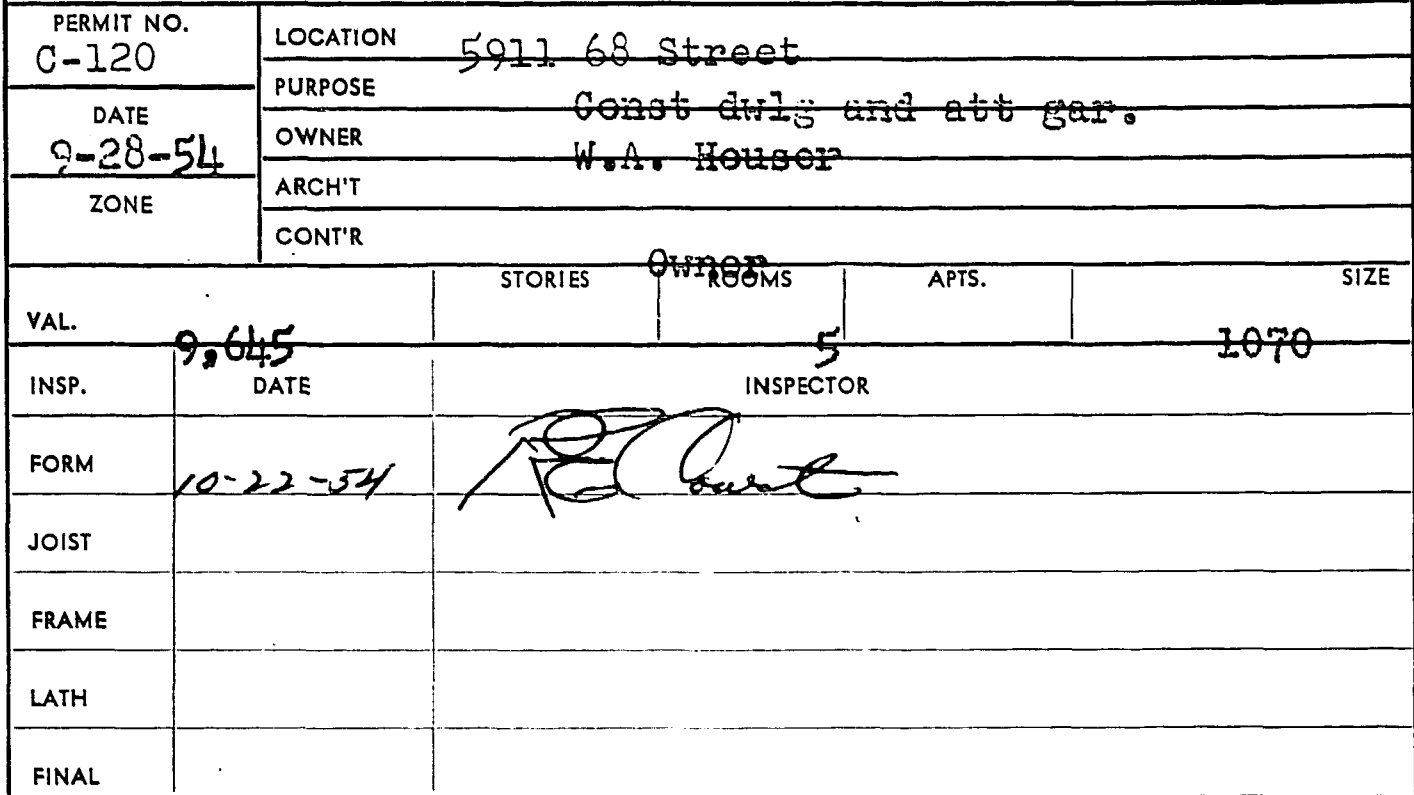 PERMIT NO.
C-120
LOCATION 5911 68 Street
PURPOSE Const dwlg and att gar.
DATE
9-28-54
OWNER W.A. Houser
ARCH'T
ZONE
CONT'R Owner
STORIES ROOMS APTS. SIZE
VAL. 9,645 5 1070
INSP. DATE INSPECTOR
FORM 10-22-54
JOIST
FRAME
LATH
FINAL